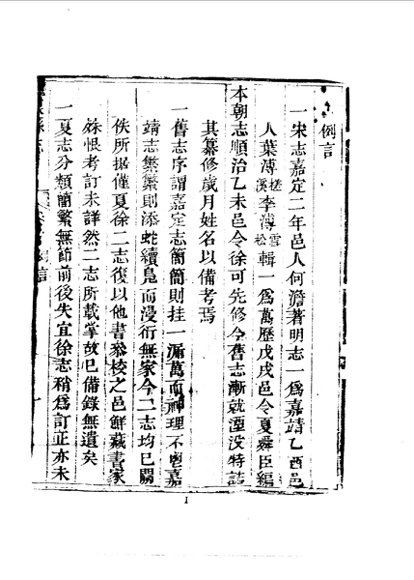 例言
一宋志嘉定二年邑人何澹著明志一為嘉靖乙酉邑
人葉溥槎溪李溥雪松輯一為萬歷戊戌邑令夏舜臣編
本朝志順治乙未邑令徐可先修今舊志漸就湮没特誌
其纂修歲月姓名以備考焉
一舊志序謂嘉定志簡簡則挂一漏萬而神理不密嘉
靖志繁繁則添蛇續鳧而漫衍無今二志均已闕
佚所據僅夏徐二志復以他書叅校之邑鮮藏書家
殊恨考訂未詳然二志所載掌故已備錄無遺矣
一夏志分類簡繁無節前後失宜徐志稍為訂正亦未
1